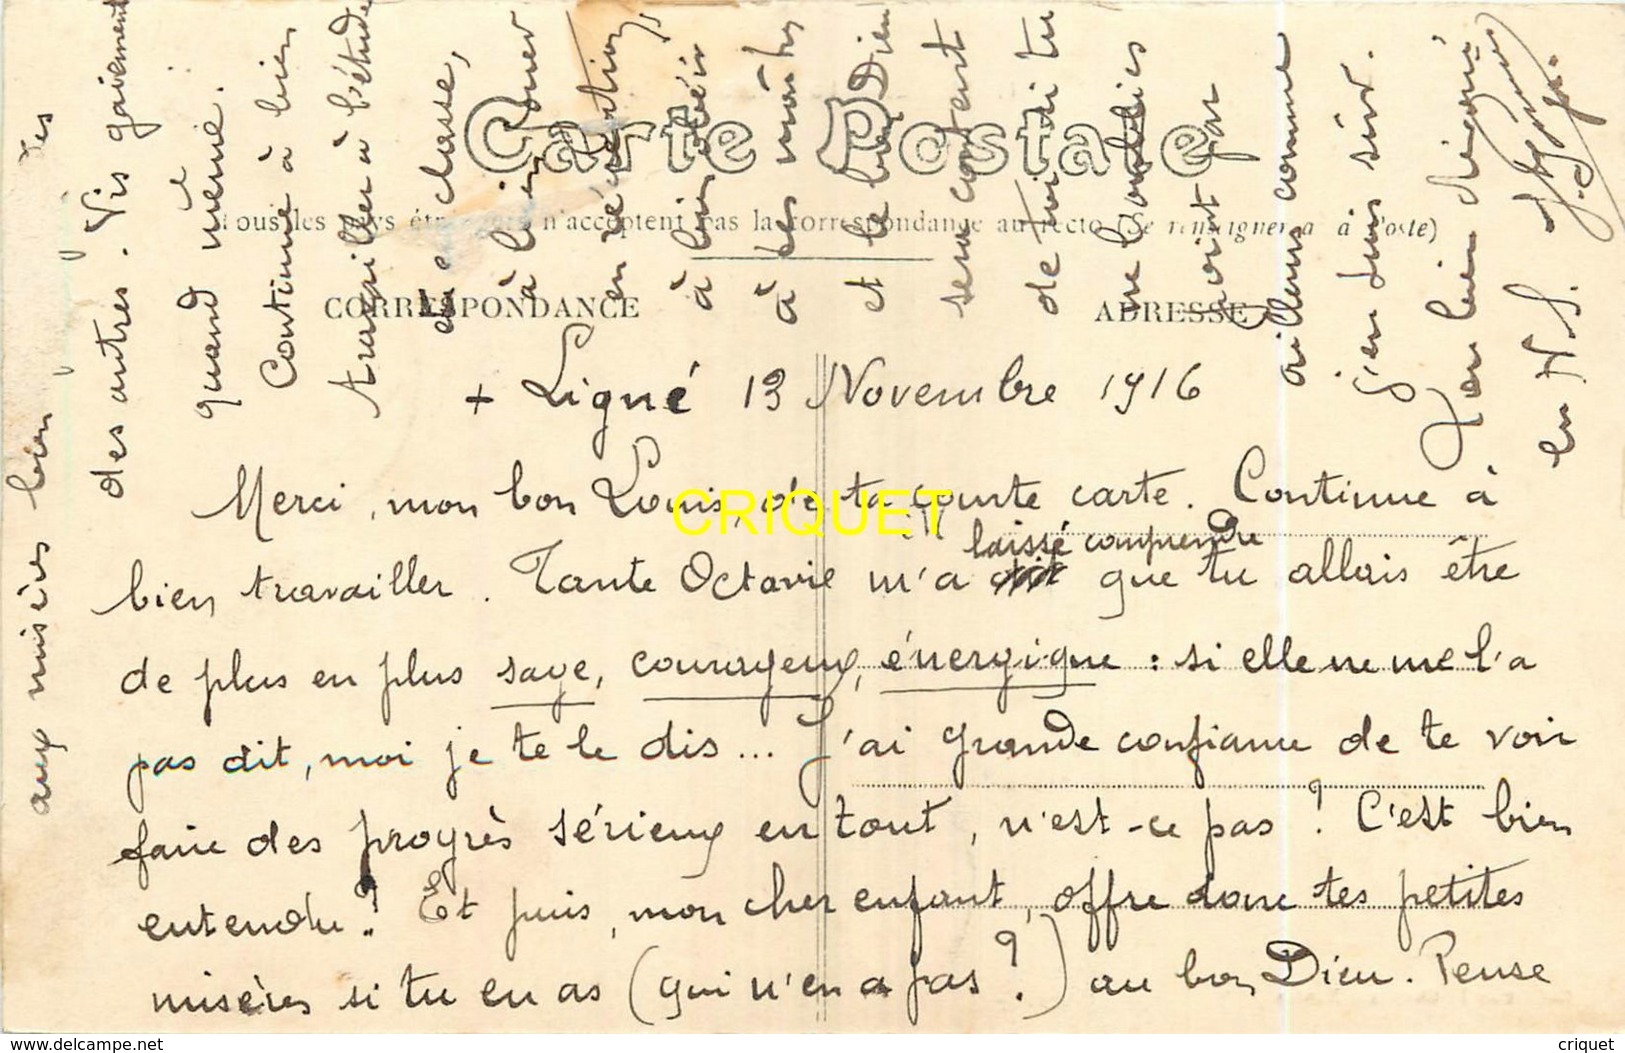 Carte Postale
Tous les pays étrangers n'acceptent pas la correspondance au recto (Se renseigner à la Poste)
CORRESPONDANCE
ADRESSE
+ Ligné 13 Novembre 1916
Merci, mon bon Louis, de ta courte carte. Continue à
laissé comprendre
bien travailler. Tante Octavie m'a que tu allais être
de plus en plus sage, courageux, énergique : si elle ne me l'a
pas dit, moi je te le dis... J'ai grande confiance de te voir
faire des progrès sérieux en tout, n'est-ce pas ? C'est bien
entendu ? Et puis, mon cher enfant, offre donc tes petites
misères si tu en as (qui n'en a pas ?) au bon Dieu. Pense
aux misères bien des
des autres. Vis gaiement
quand même.
Continue à bien
travailler à l'étude
en classe,
à bien jouer
en récréation,
à bien obéir
à tes maîtres
et le bon Dieu
sera content
de toi si tu
ne l'oublies
point par
ailleurs comme
j'en suis sûr.
Ton bien dévoué
en N.S.
CRIQUET
www.delcampe.net
criquet